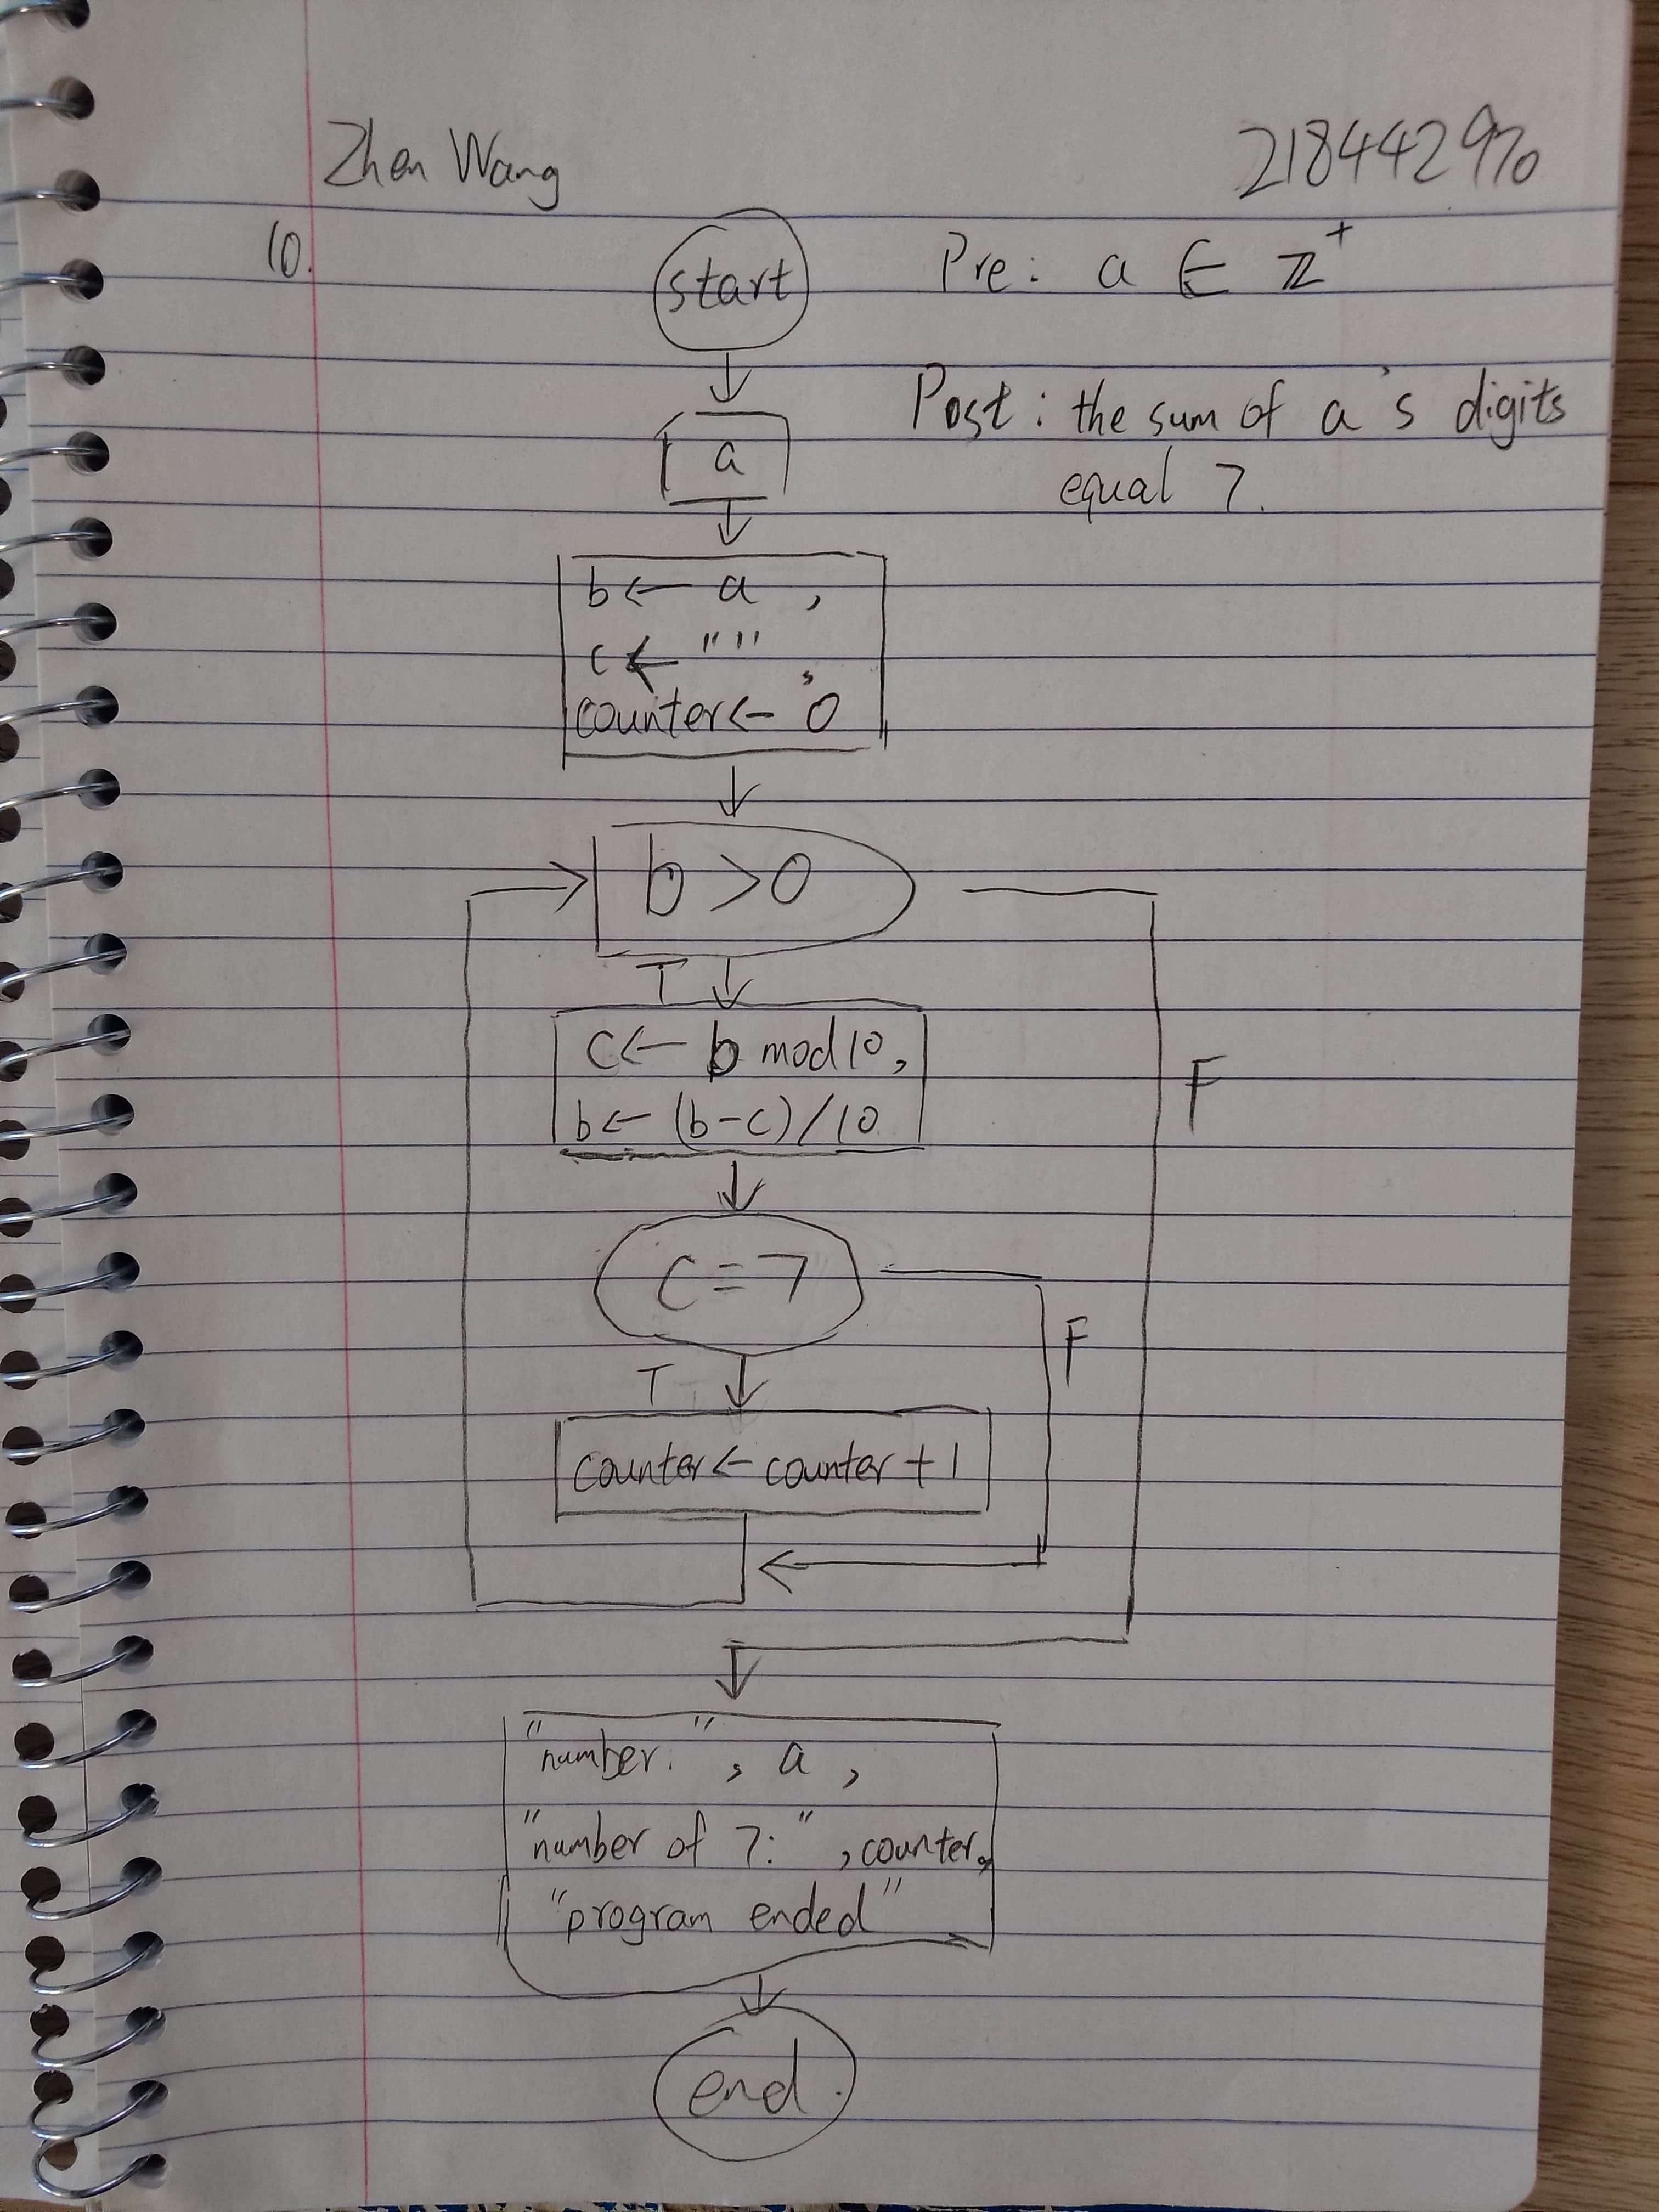 Zhen Wang 218442970
10.
start Pre: a ∈ ℤ⁺
a Post: the sum of a's digits
equal 7.
b ← a ,
c ← "" ,
counter ← 0
b > 0
T
c ← b mod 10,
b ← (b-c)/10
F
c = 7
F
T
counter ← counter + 1
"number: ", a ,
"number of 7: ", counter,
"program ended"
end.